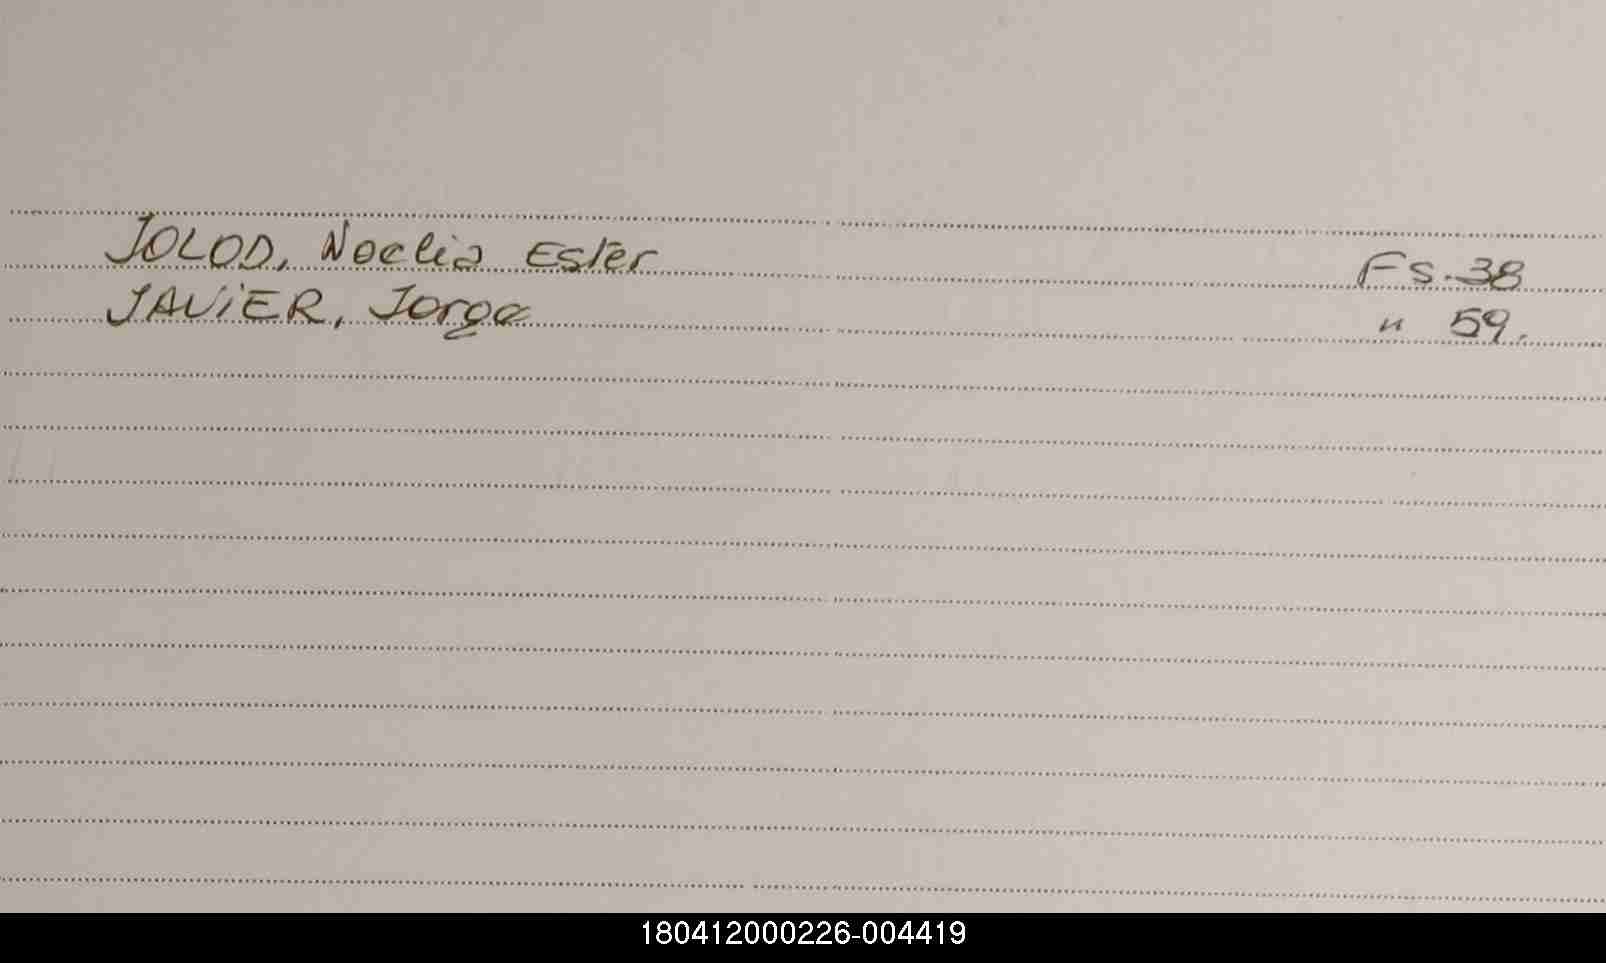 JOLOD, Noelia Ester Fs. 38
JAVIER, Jorge " 59.
180412000226-004419